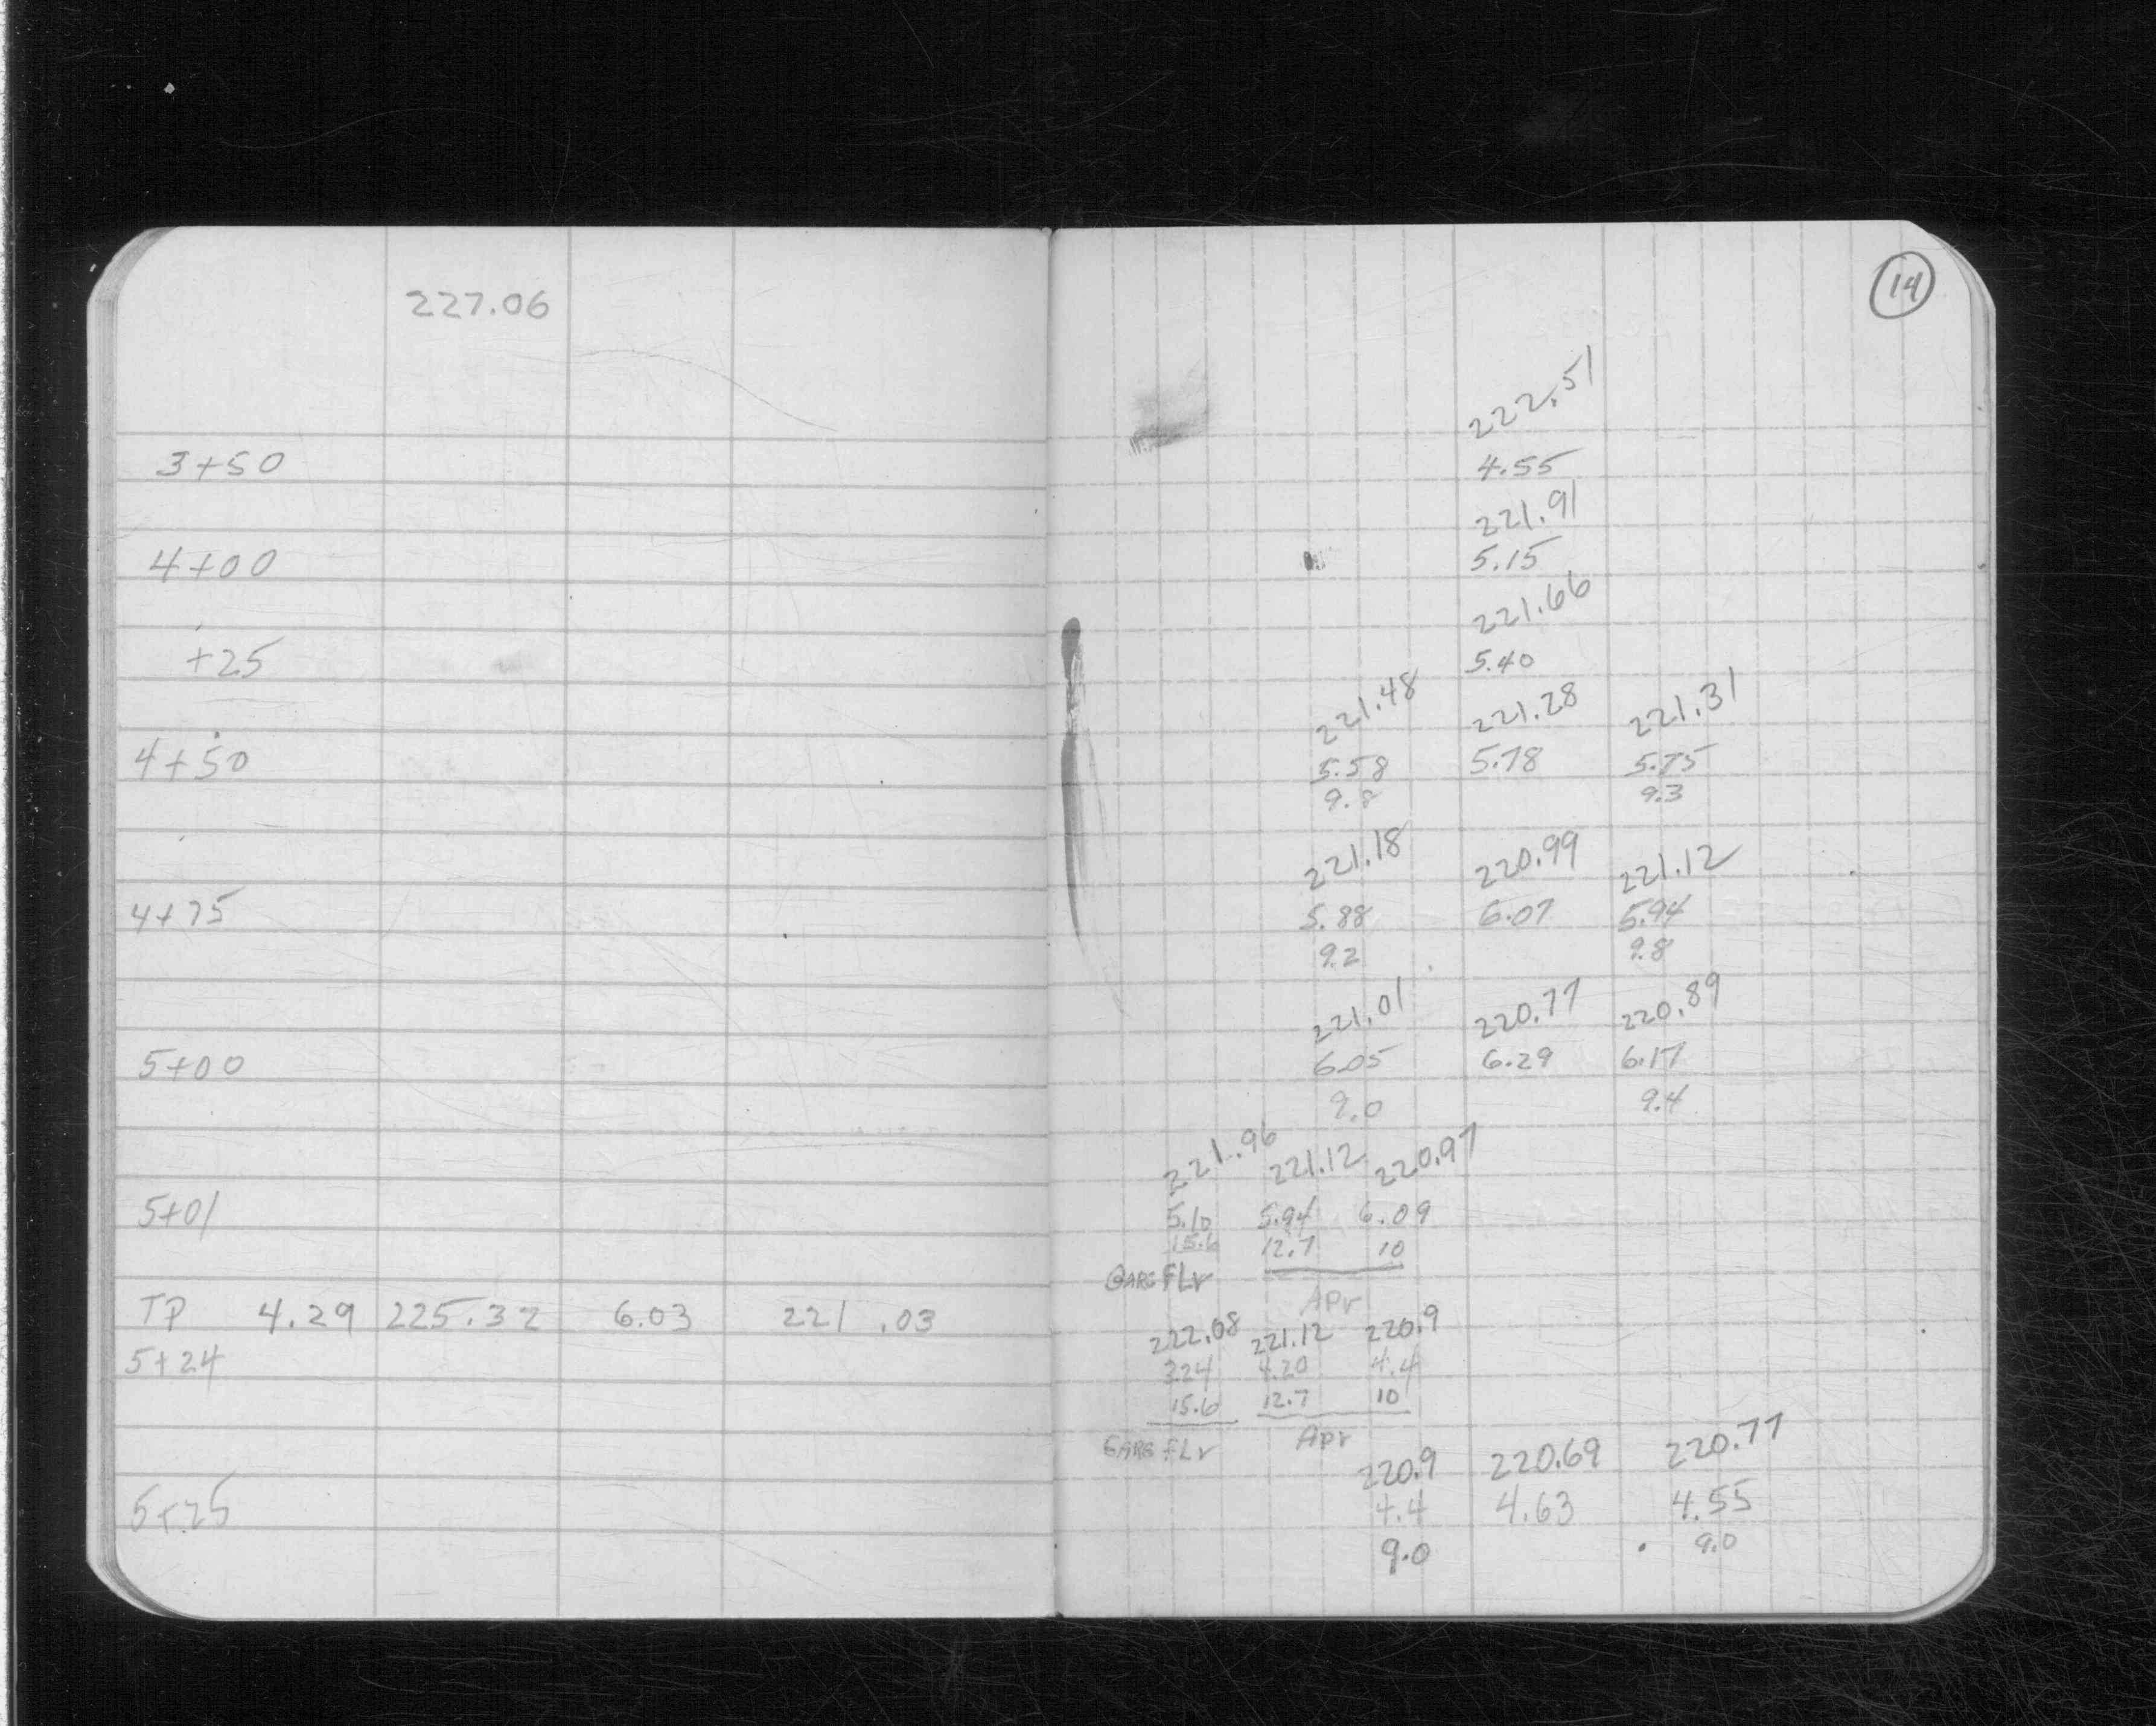 227.06
14
222.51
3+50 4.55
221.91
4+00 5.15
221.66
+25 5.40
221.48 221.28 221.31
4+50 5.58 5.78 5.75
9.8 9.3
221.18 220.99 221.12
4+75 5.88 6.07 5.94
9.2 9.8
221.01 220.77 220.89
5+00 6.05 6.29 6.17
9.0 9.4
221.96 221.12 220.97
5+01 5.10 5.94 6.09
15.6 12.7 10
GARG FLr Apr
TP 4.29 225.32 6.03 221.03
222.08 221.12 220.9
5+24 3.24 4.20 4.4
15.6 12.7 10
GARG FLr Apr
220.9 220.69 220.77
5+25 4.4 4.63 4.55
9.0 9.0